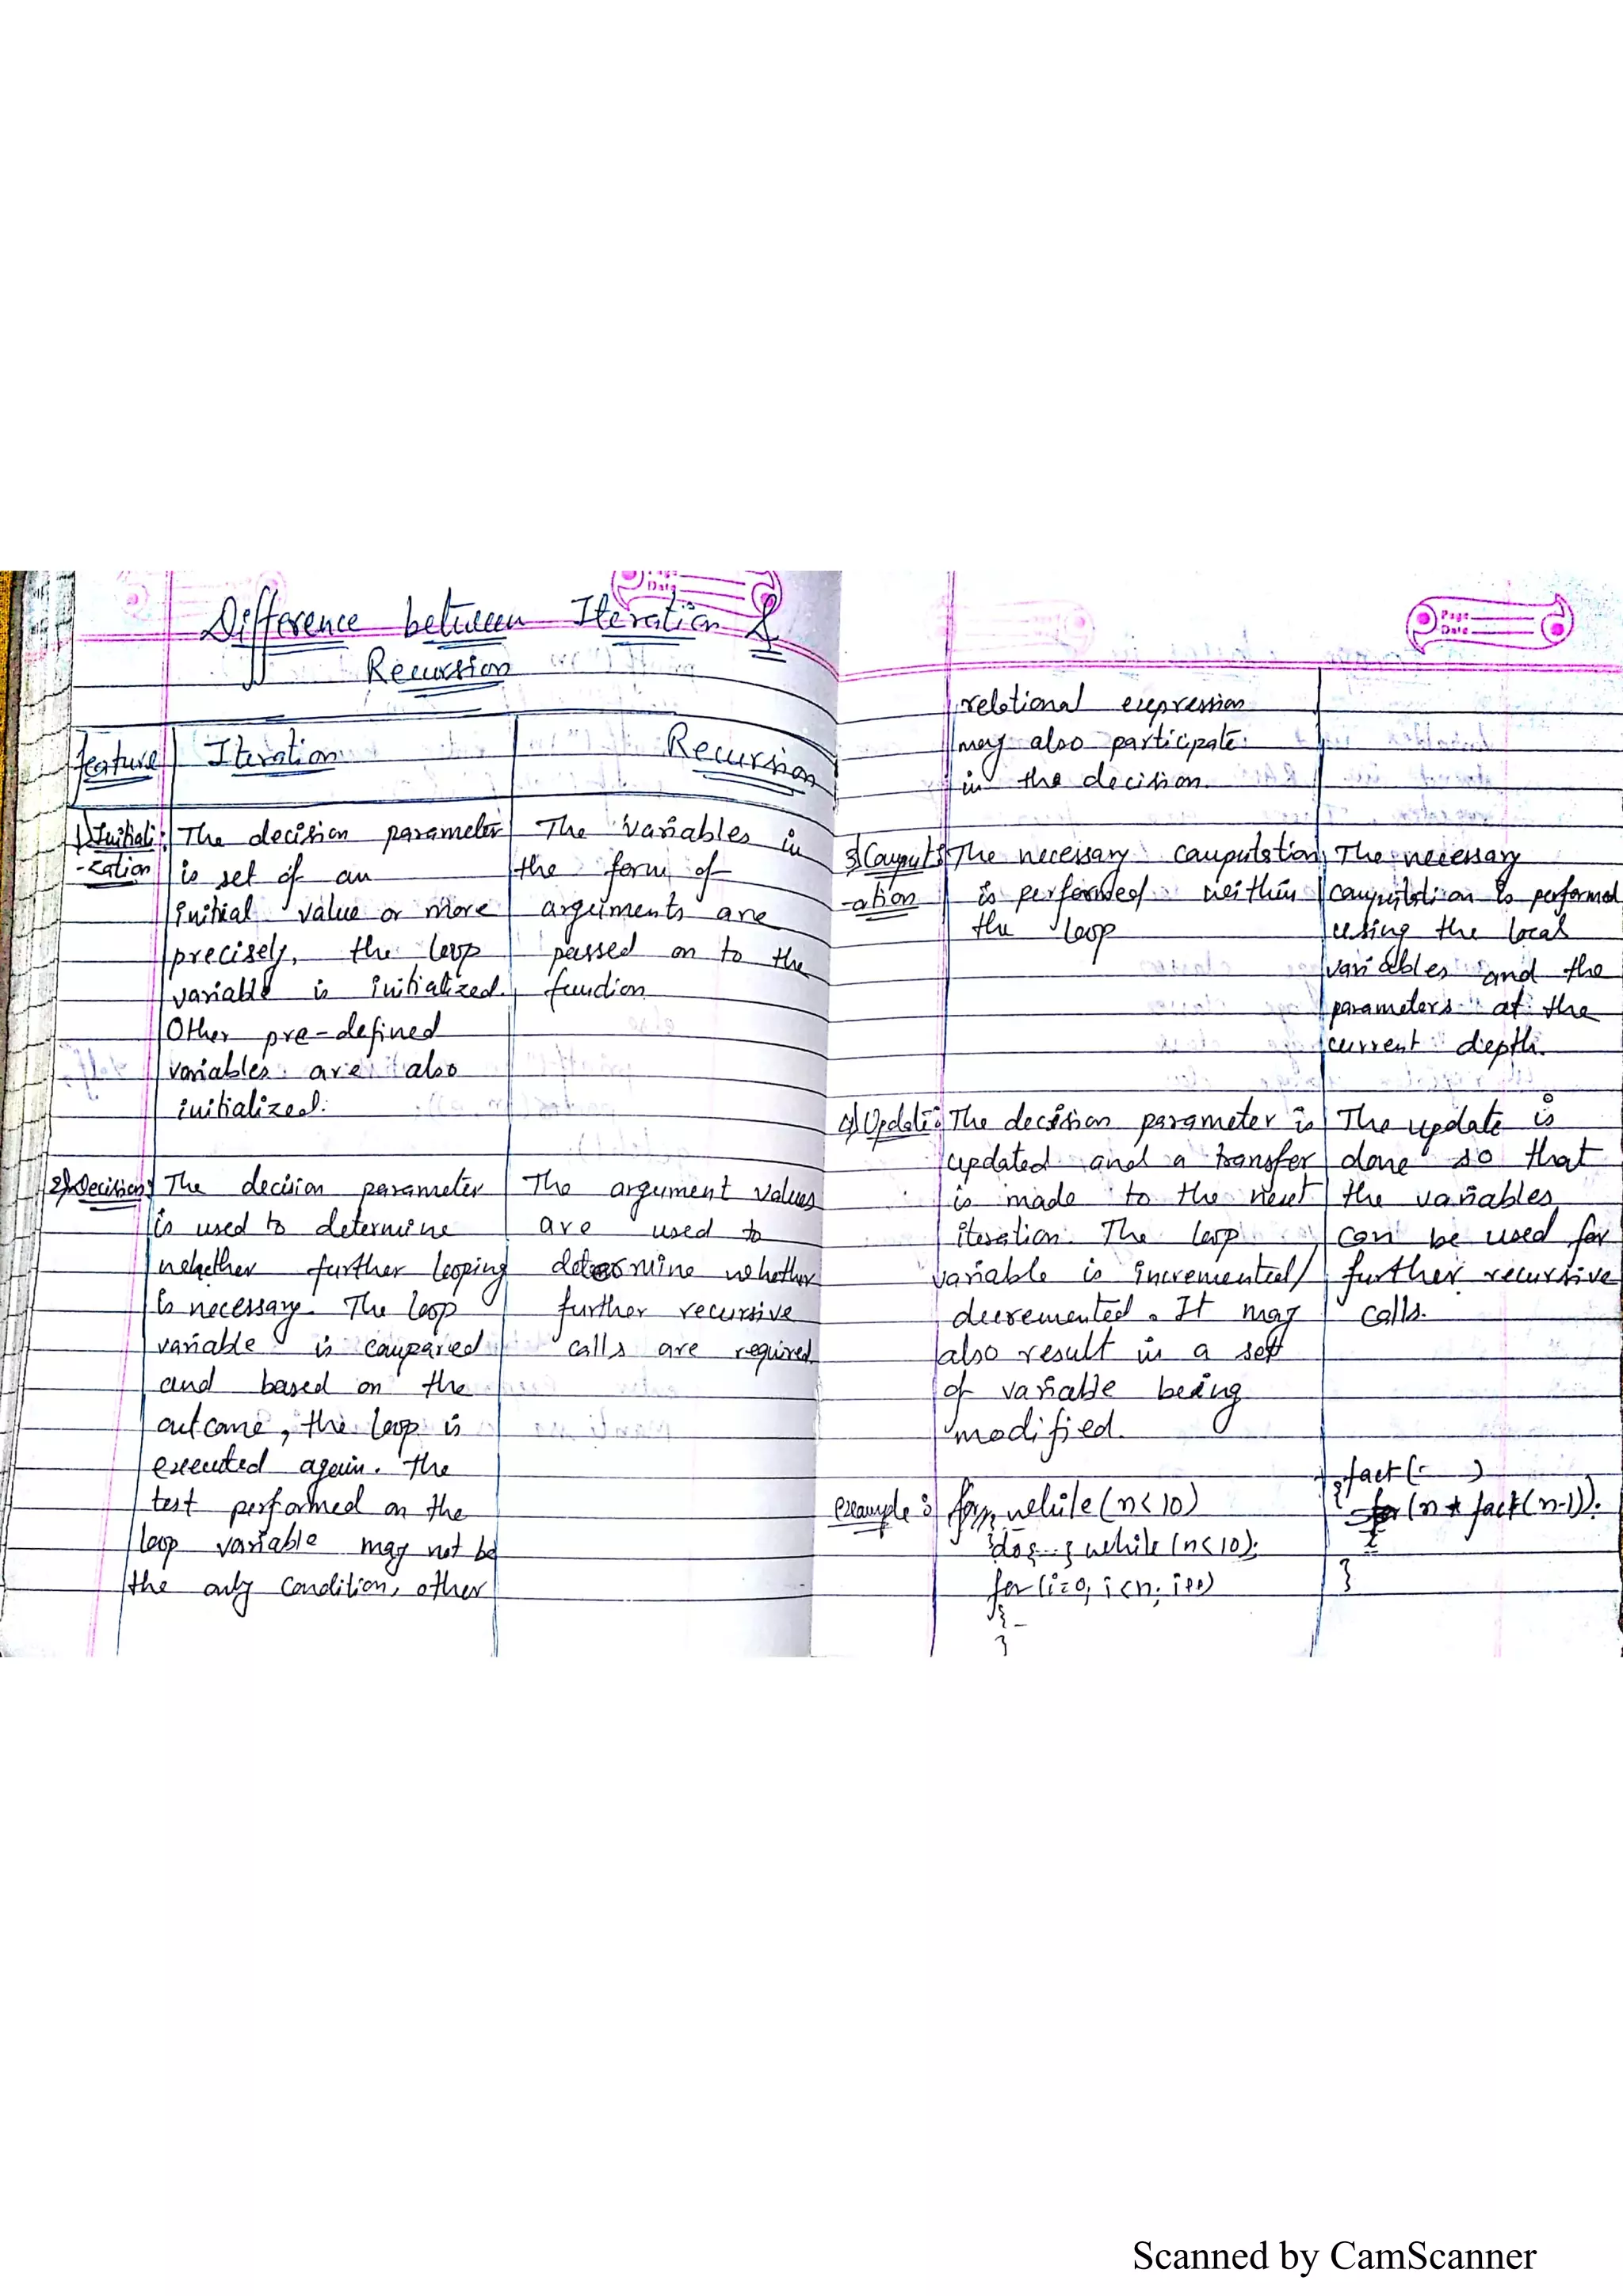 Page
Date
Difference between Iteration &
Recursion
feature Iteration Recursion
1) Initiali: The decision parameter The variables in
-zation is set of an the form of
initial value or more arguments are
precisely, the loop passed on to the
variable is initialized. function
Other pre-defined
variables are also
initialized.
2) Decision: The decision parameter The argument values
is used to determine are used to
whether further looping determine whether
is necessary. The loop further recursive
variable is compared calls are required
and based on the
outcome, the loop is
executed again. The
test performed on the
loop variable may not be
the only condition, other
Page
Date
relational expression
may also participate
in the decision.
3) Comput: The necessary computation The necessary
-ation is performed within computation is performed
the loop using the local
variables and the
parameters at the
current depth.
4) Update: The decision parameter is The update is
updated and a transfer done so that
is made to the next the variables
iteration. The loop can be used for
variable is incremented/ further recursive
decremented. It may calls.
also result in a set
of variable being
modified.
fact( )
Example: for, while (n<10) { (n * fact(n-1));
do { } while (n<10);
for (i=0; i<n; i++) }
{
}
Scanned by CamScanner